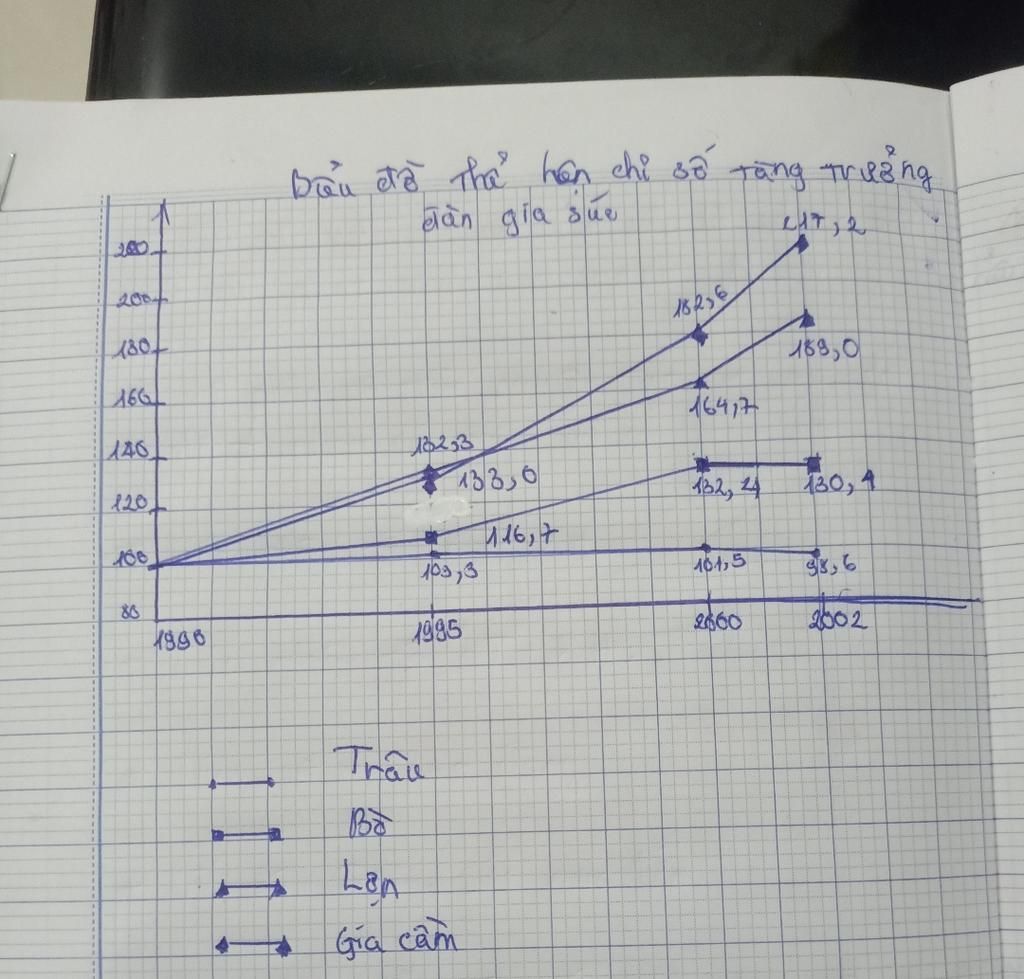 Biểu đồ thể hiện chỉ số tăng trưởng
đàn gia súc
217,2
200
182,6
200
180
189,0
160
164,7
140
132,3
133,0
132,4
130,4
120
116,7
100
103,3
101,5
98,6
80
1990
1995
2000
2002
Trâu
Bò
Lợn
Gia cầm